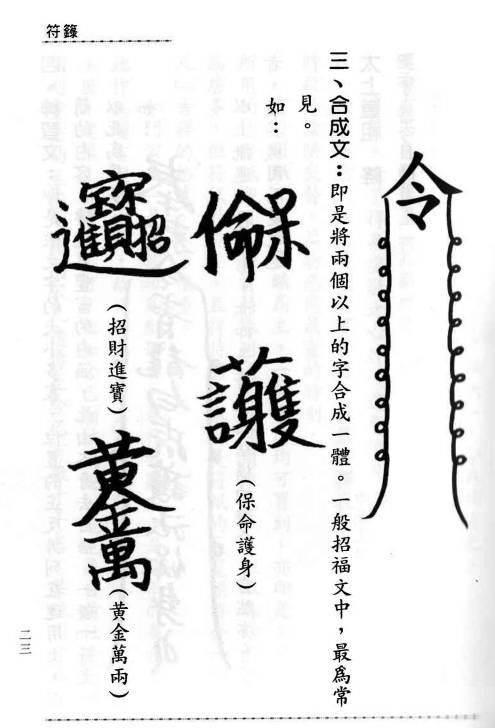 符籙
令
三、合成文：即是將兩個以上的字合成一體。一般招福文中，最爲常
見。
如：
（保命護身）
（招財進寶）
黃金萬
（黃金萬兩）
二三